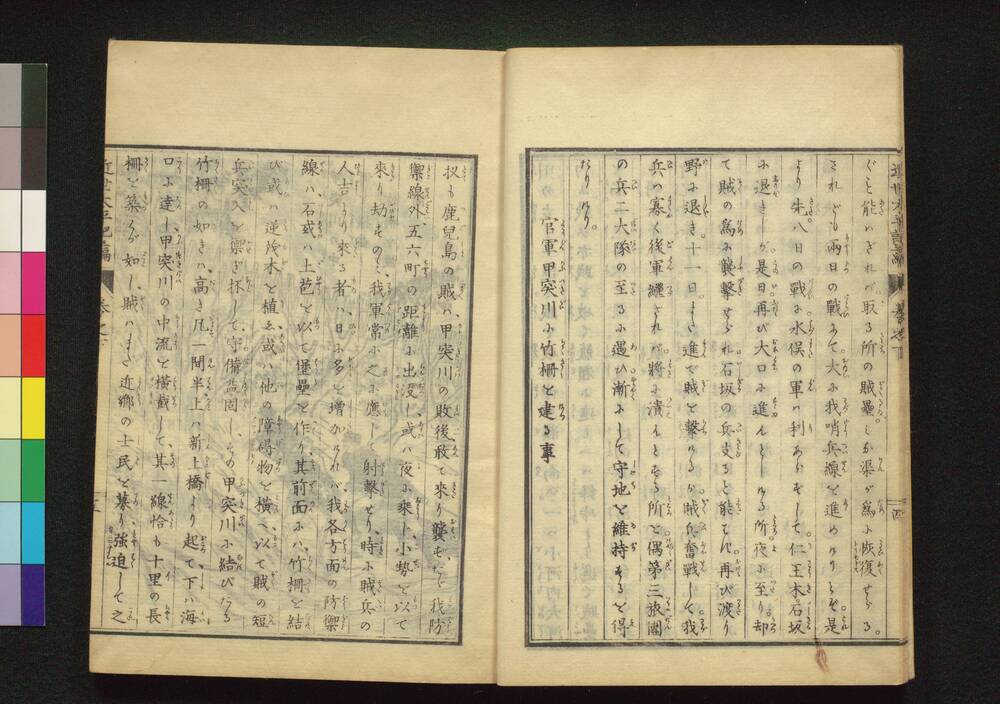 ぐと能ハざれバ取る所の賊壘しか渠が爲に恢復せらる。
されども兩日の戰ありて大に我哨兵線を進めけりと是
より先八日の戰に水俣の軍ハ利あらずして仁王木石坂
に退きしが是日再び大口に進んとしける所夜に至り却
て賊の爲に襲撃せられ石坂の兵支ると能ハず再び渡り
野に退き十一日まさ進で賊を撃けるが賊兵奮戰して我
兵ハ寡く後軍纒されバ將に潰れんとする所と偶第三旅團
の兵二大隊の至るに遇ひ漸にして守地を維持するを得
たりけり。
官軍甲突川に竹柵を建る事
扨も鹿兒島の賊ハ甲突川の敗後敢て來り襲ず我防
禦線外五六町の距離に出没し或ハ夜に乘じ小勢を以て
來り劫すのミ我軍常に之に應じて射撃せり時に賊兵の
人吉より來る者ハ日に多を増加すれバ我各方面の防禦
線ハ石或ハ土苞を以て堡壘を作り其前面にハ竹柵を結
び或ハ逆茂木を植ゑ或ハ他の障碍物を横へ以て賊の短
兵突入を禦ぎ抔して守備益固し、その甲突川に結びたる
竹柵の如きハ高き凡一間半上ハ新上橋より起て下ハ海
口に達し甲突川の中流を横截して其一線恰も十里の長
柵を築くが如し賊ハまた近郷の士民を募り強迫して之